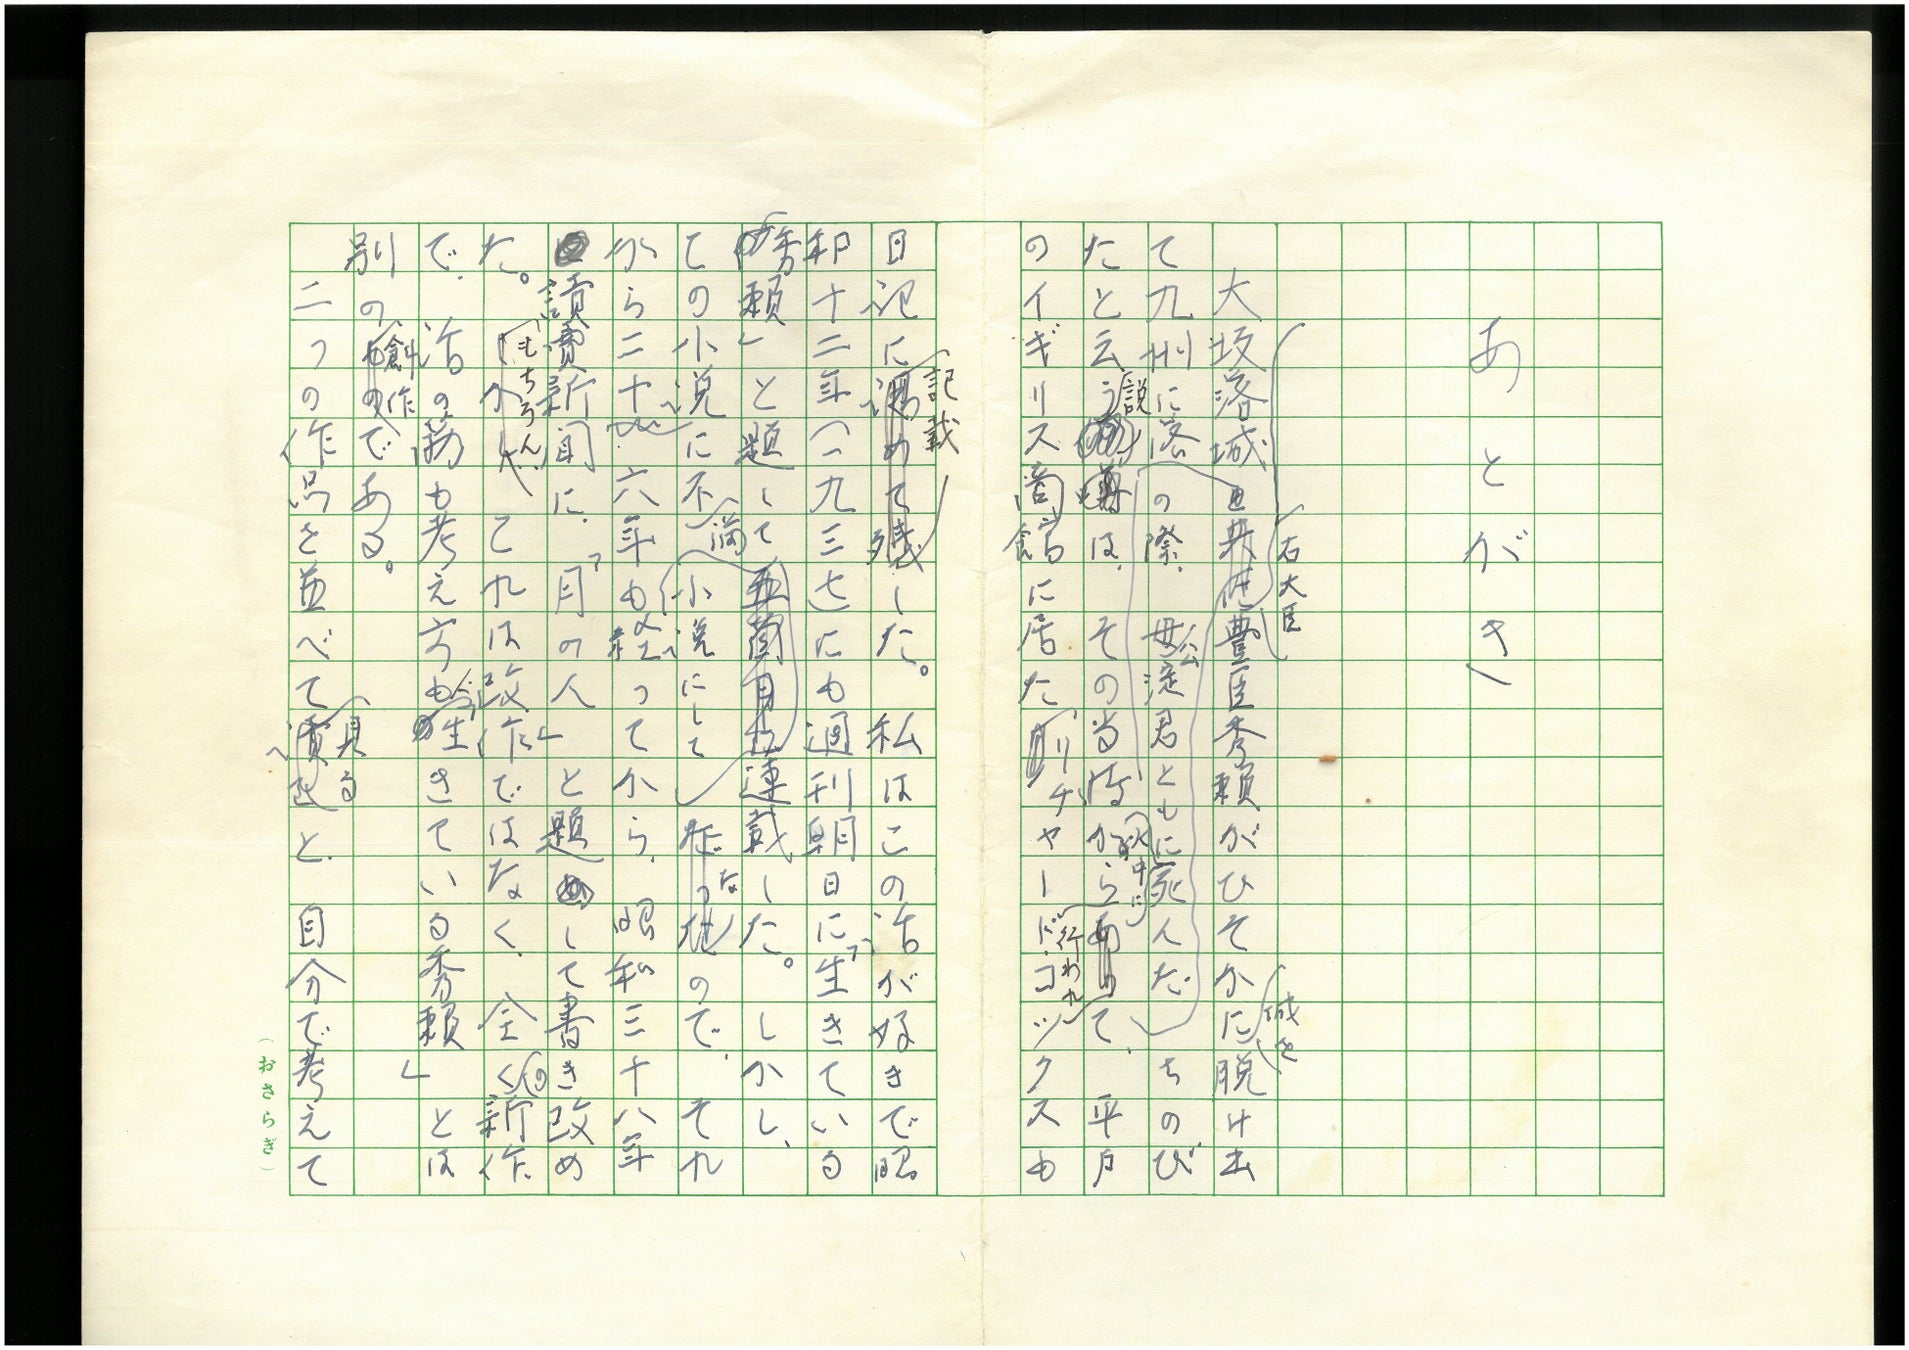 あとがき
大坂落城の際、右大臣豊臣秀頼がひそかに城を脱け出
て九州に落 母公淀君とともに死んだ ちのび
たと云う説は、その当時から行われて、平戸
のイギリス商館に居たリチャード・コックスも
日記に記載した。私はこの話が好きで昭
和十二年(一九三七)にも週刊朝日に「生きている
秀頼」と題して連載した。しかし、
ての小説に不満 小説にして なので、それ
から二十六年も経ってから、昭和三十八年
讀賣新聞に、「月の人」と題して書き改め
た。もちろん、これは改作ではなく、全くの新作
で、話の筋も考え方も「生きている秀頼」とは
別の創作である。
二つの作品を並べて見ると、自分で考えて
(おさらぎ)